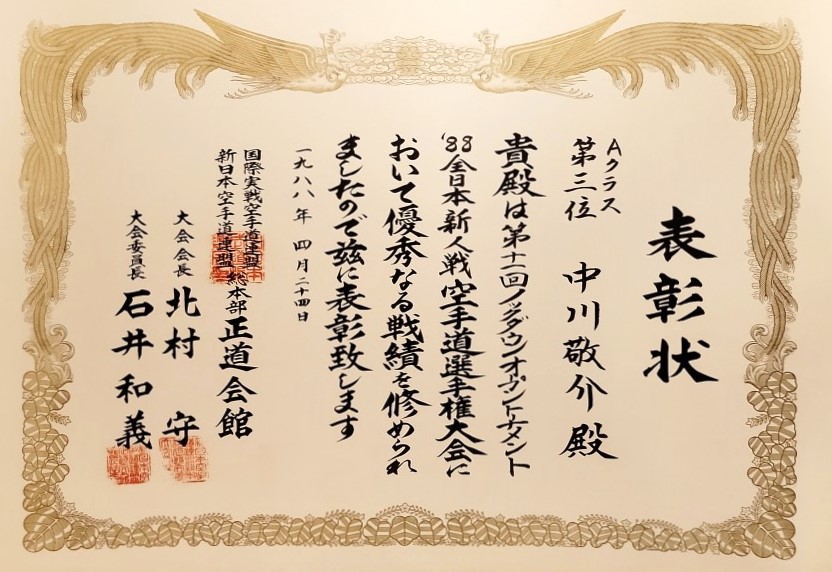 表彰状
Aクラス
第三位 中川敬介殿
貴殿は第十二回ノックダウンオープントーナメント
'88全日本新人戦空手道選手権大会に
おいて優秀なる戦績を修められ
ましたので茲に表彰致します
一九八八年 四月二十四日
国際実戦空手道連盟
新日本空手道連盟 総本部 正道会館
大会会長 北村 守
大会委員長 石井和義